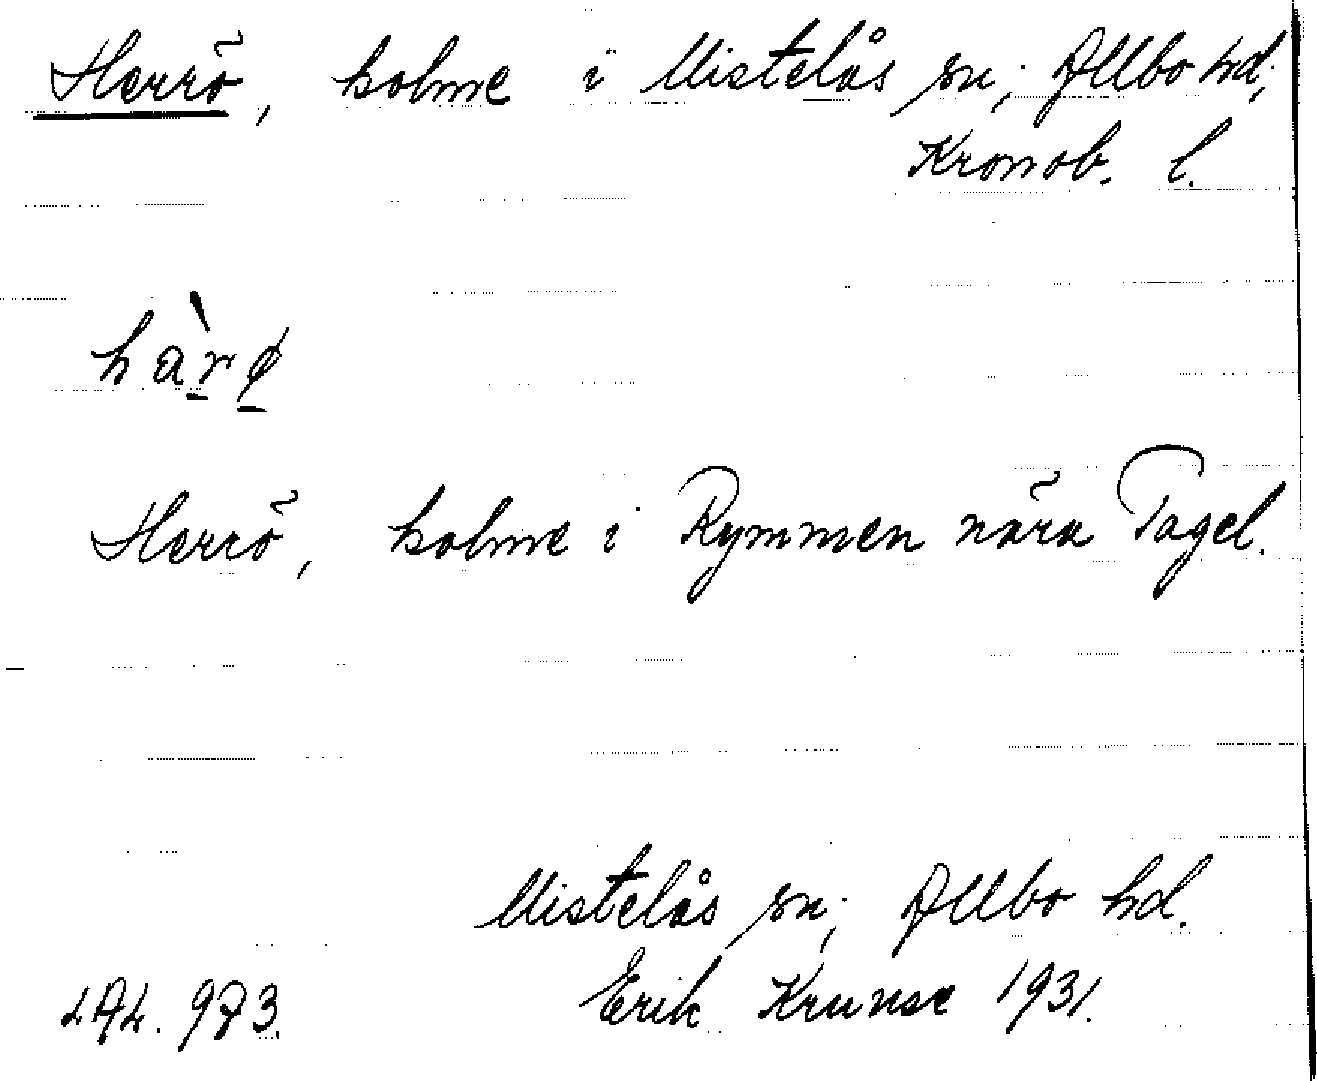 Herrö, holme i Mistelås sn; Allbo hd;
Kronob. l.
hàrø
Herrö, holme i Rymmen nära Tagel.
Mistelås sn; Allbo hd.
LAL. 973. Erik Krunse 1931.